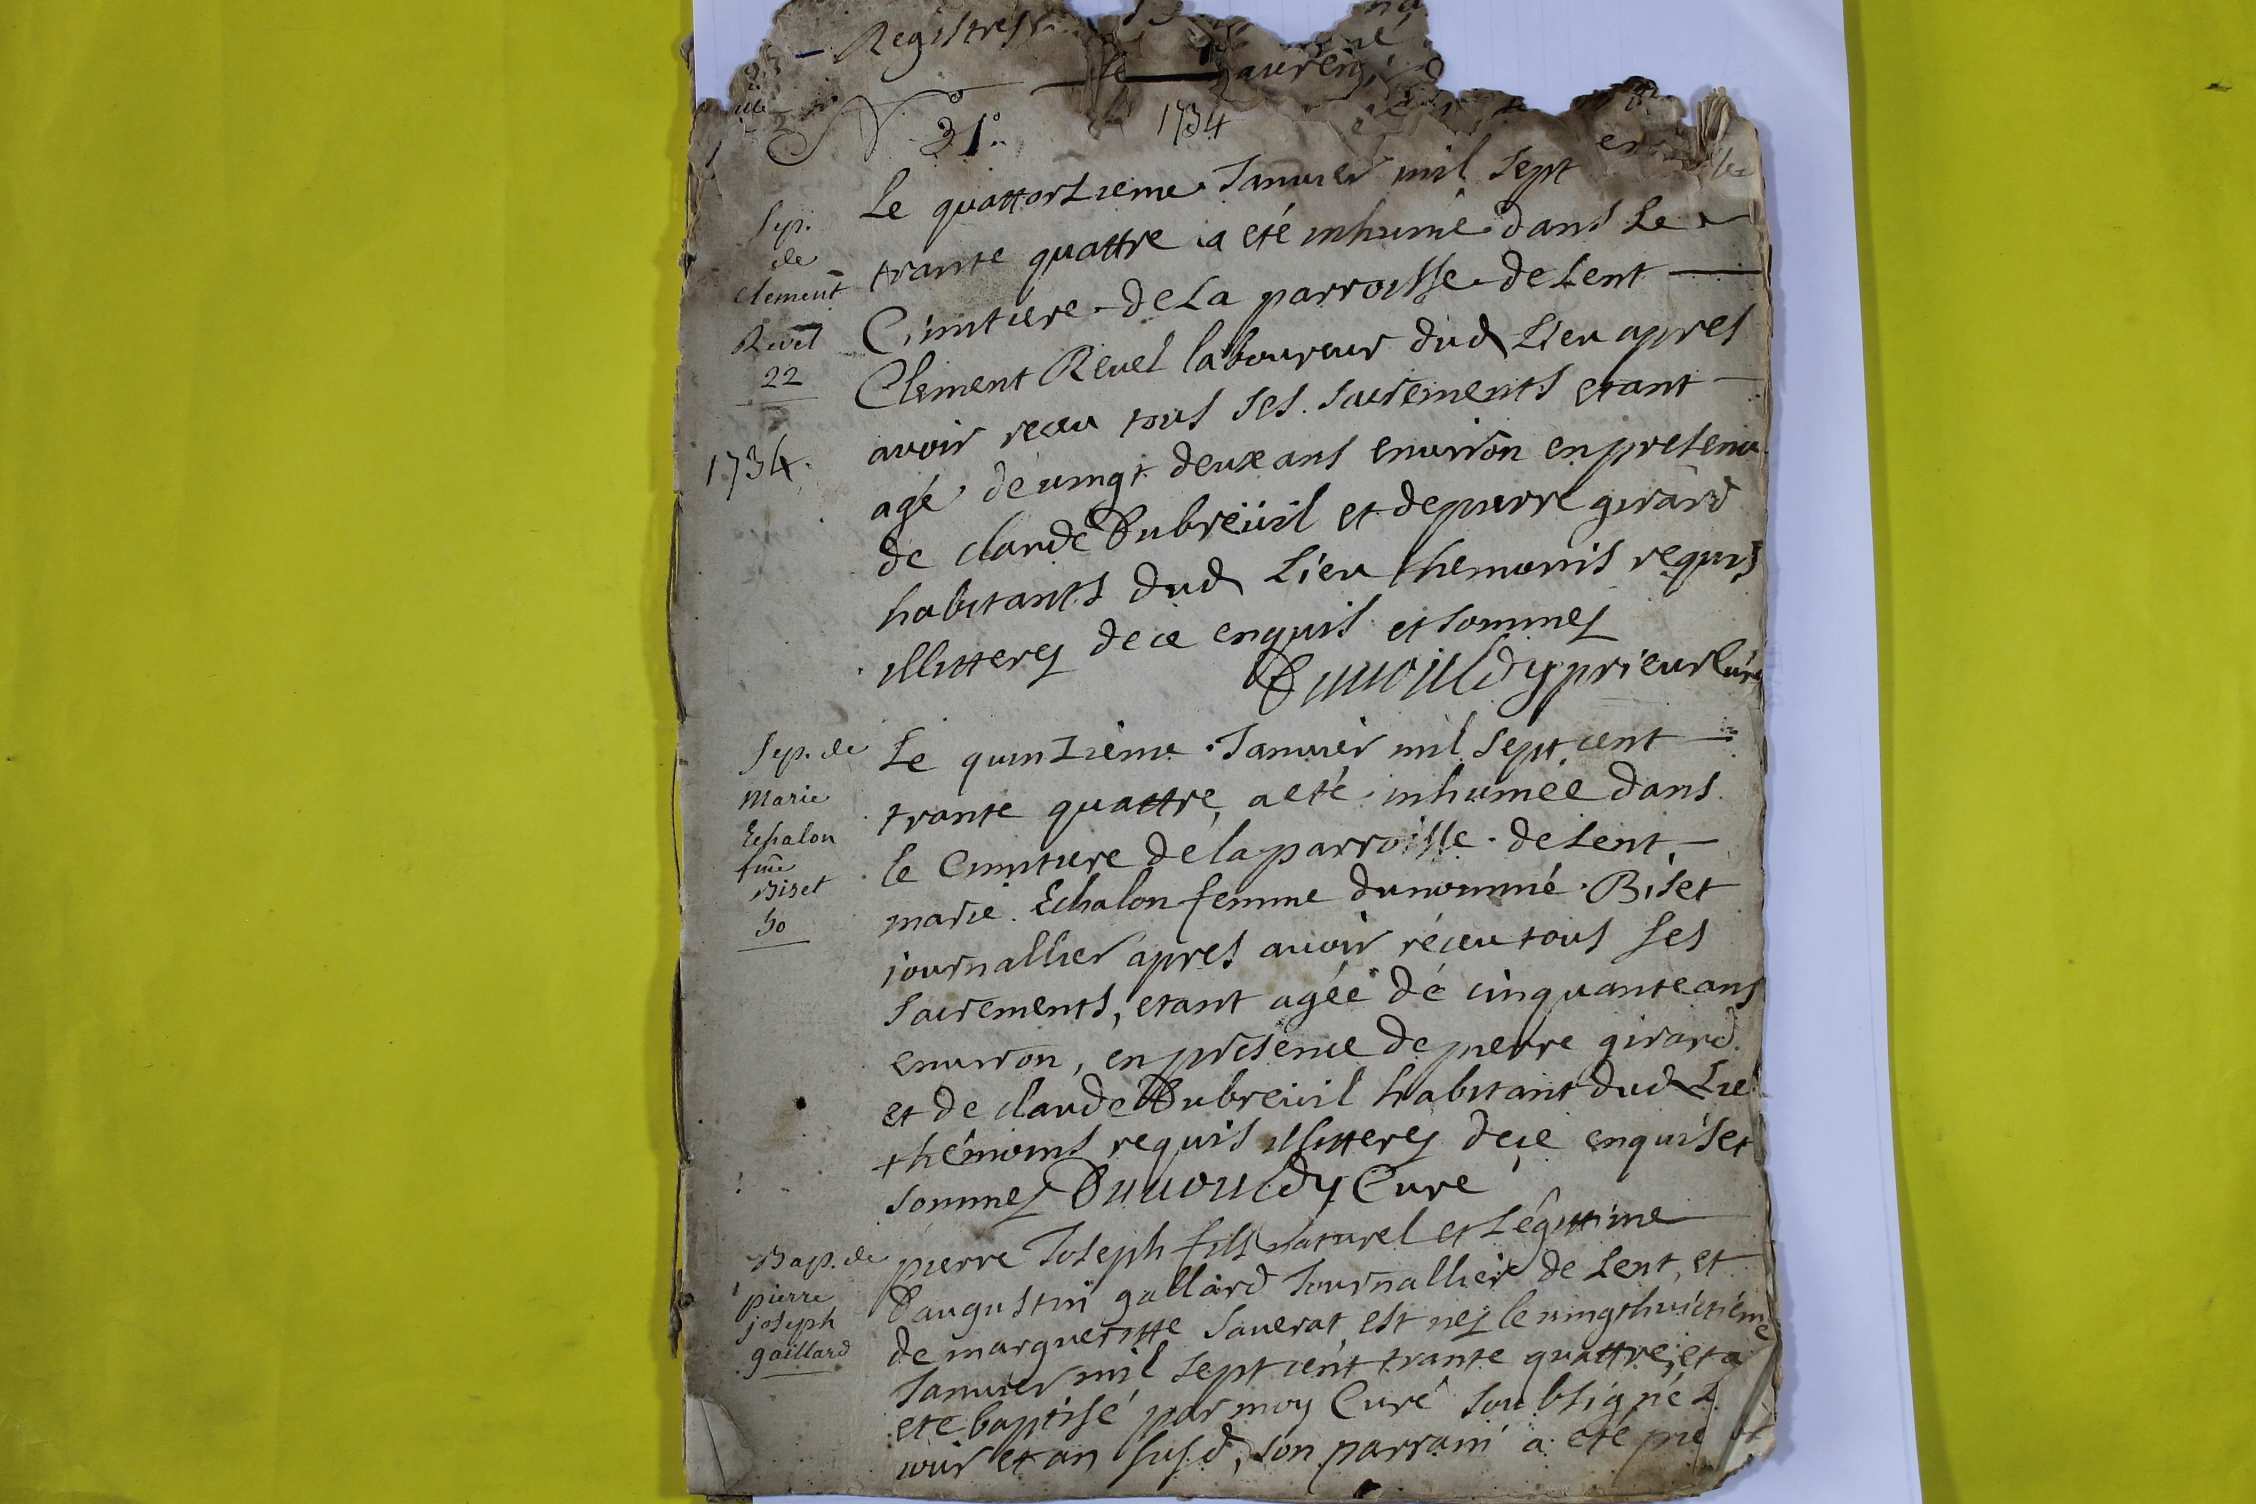 Registres
1734
31
Le quattorzieme Januier mil sept
trante quattre a eté inhumé dans le
Cimitiere de la parroisse de Lent
Clement Reuel laboureur dud Lieu apres
avoir receu tous ses sacrements etant
agé de uingt deux ans enuiron en presence
de claude Dubreüil et de pierre girard
habitants dud Lieu themoins requis
illitterez de ce enquis et sommez
prieur Curé
Sep.
de
Clement
Revel
22
1734.
Le quinzieme Januier mil sept cent
trante quattre, a eté inhumée dans
le Cimitiere de la parroisse de Lent,
marie Echalon femme du nommé Biset
journallier apres auoir réceu tous ses
sacrements, etant agée dé cinquante ans
enuiron, en presence de pierre girard
et de claude Dubreüil habitant dud Lie
thémoins requis illitterez de ce enquis et
sommez Curé
Sep. de
Marie
Echalon
fme
Biset
50
pierre Joseph fils naturel et Légittime
D'augustin gallard Journallier de Lent, et
de margueritte Sauerat est nez le uingthuictiéme
Januier mil sept cent trante quattre, et a
eté baptisé par moy Curé soubsigné L
jour et an susd, son parrain a eté
Bap. de
pierre
joseph
gaillard